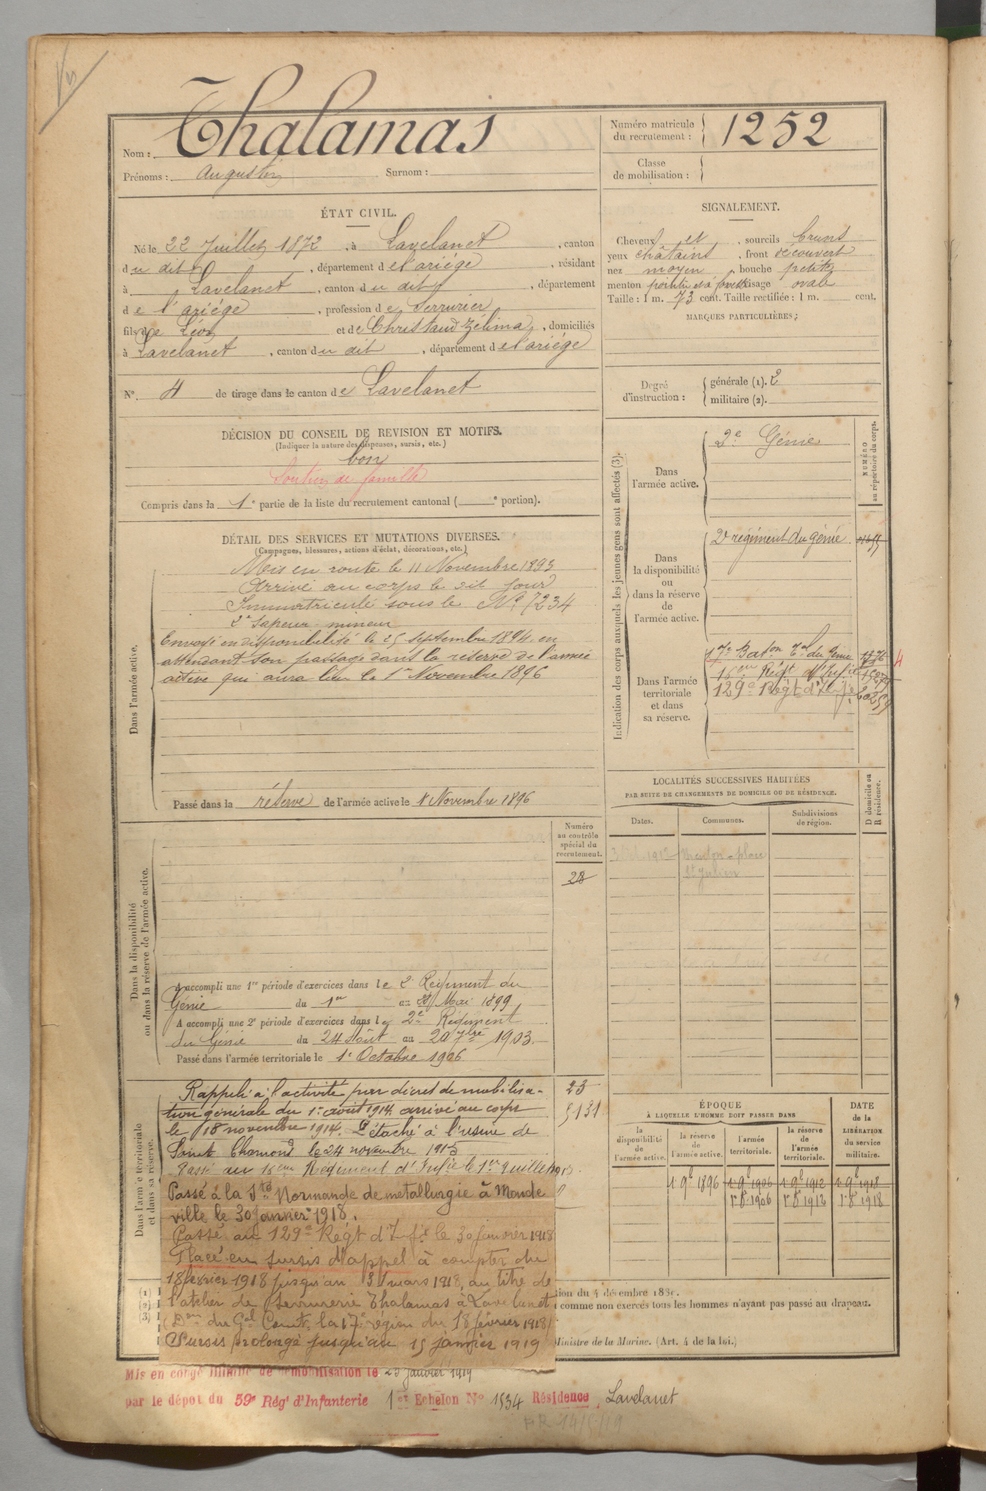 Nom : Thalamas
Prénoms : Auguste Surnom :
Numéro matricule du recrutement : 1252
Classe de mobilisation :
ÉTAT CIVIL.
Né le 22 Juillet 1872, à Lavelanet, canton
du dit, département de l'ariége, résidant
à Lavelanet, canton du dit, département
de l'ariége, profession de Serrurier
fils de Léon et de Christaud Zélima, domiciliés
à Lavelanet, canton du dit, département de l'ariége
N° 4 de tirage dans le canton de Lavelanet
SIGNALEMENT.
Cheveux et sourcils bruns
yeux châtains, front découvert
nez moyen, bouche petite
menton pointu et à fossette visage ovale
Taille : 1 m. 73 cent. Taille rectifiée : 1 m. cent.
MARQUES PARTICULIÈRES :
Degré d'instruction : générale (1). 2
militaire (2).
DÉCISION DU CONSEIL DE REVISION ET MOTIFS.
(Indiquer la nature des dispenses, sursis, etc.)
bon
Soutien de famille
Compris dans la 1e partie de la liste du recrutement cantonal ( e portion).
DÉTAIL DES SERVICES ET MUTATIONS DIVERSES.
(Campagnes, blessures, actions d'éclat, décorations, etc.)
Dans l'armée active.
Mis en route le 11 Novembre 1893
Arrivé au corps le dit jour
Immatriculé sous le N° 7234
2e Sapeur mineur
Envoyé en disponibilité le 25 septembre 1894 en
attendant son passage dans la réserve de l'armée
active qui aura lieu le 1er Novembre 1896
Passé dans la réserve de l'armée active le 1 Novembre 1896
Indication des corps auxquels les jeunes gens sont affectés (3).
NUMÉRO au répertoire du corps.
Dans l'armée active.
2e Génie
Dans la disponibilité ou dans la réserve de l'armée active.
2e régiment du génie
Dans l'armée territoriale et dans sa réserve.
17e Baton Tal du Génie
16eme Régt d'Infie
129e Régt d'Infie
LOCALITÉS SUCCESSIVES HABITÉES
PAR SUITE DE CHANGEMENTS DE DOMICILE OU DE RÉSIDENCE.
Dates. Communes. Subdivisions de région. D domicile ou R résidence.
Numéro au contrôle spécial du recrutement.
28
Dans la disponibilité ou dans la réserve de l'armée active.
A accompli une 1re période d'exercices dans le 2e Régiment du
Génie du 1er au 28 Mai 1899
A accompli une 2e période d'exercices dans le 2e Régiment
du Génie du 24 Août au 20 7bre 1903.
Passé dans l'armée territoriale le 1er Octobre 1906
Dans l'armée territoriale et dans sa réserve.
Rappelé à l'activité par décret de mobilisa-
tion générale du 1er août 1914 arrivé au corps
le 18 novembre 1914. Détaché à l'usine de
Saint Chamond le 24 novembre 1915
Passé au 16eme Régiment d'Infie le 1er Juillet
23
5131
Passé à la Sté Normande de métallurgie à Monde
ville le 30 janvier 1918.
Passé au 129e Régt d'Infie le 30 janvier 1918
Placé en sursis d'appel à compter du
18 février 1918 jusqu'au 31 mars 1918, au titre de
l'atelier de Serrurerie Thalamas à Lavelanet
(Don du Gal Comt la 17e région du 18 février 1918)
Sursis prolongé jusqu'au 15 janvier 1919
ÉPOQUE
À LAQUELLE L'HOMME DOIT PASSER DANS
la disponibilité de l'armée active. la réserve de l'armée active. l'armée territoriale. la réserve de l'armée territoriale.
DATE de la LIBÉRATION du service militaire.
1 9e 1896 1 9e 1906 1 9e 1912 1 9e 1918
1er 8e 1906 1er 8e 1912 1er 8e 1918
comme non exercés tous les hommes n'ayant pas passé au drapeau.
Ministre de la Marine. (Art. 4 de la loi.)
Mis en congé illimité de démobilisation le 23 Janvier 1919
par le dépot du 59e Régt d'Infanterie 1er Echelon N° 1534 Résidence Lavelanet